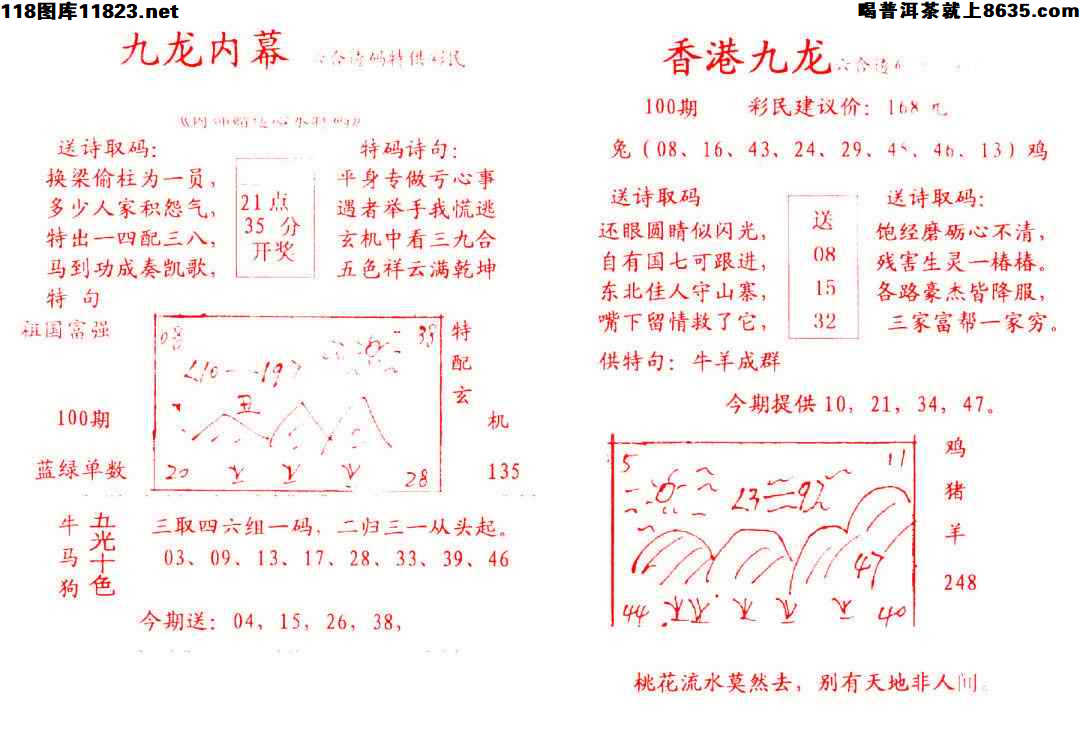 118图库11823.net
喝普洱茶就上8635.com
九龙内幕
六合透码特供彩民
送诗取码:
换梁偷柱为一员,
多少人家积怨气,
特出一四配三八,
马到功成奏凯歌,
特 句
祖国富强
21点
35 分
开奖
特码诗句:
平身专做亏心事
遇者举手我慌逃
玄机中看三九合
五色祥云满乾坤
100期
蓝绿单数
08
33
丑
20
28
特
配
玄
机
135
牛
马
狗
五光十色
三取四六组一码, 二归三一从头起。
03、09、13、17、28、33、39、46
今期送: 04, 15, 26, 38,
香港九龙
六合透
100期 彩民建议价: 168
兔 ( 08、16、43、24、29、45、46、13 ) 鸡
送诗取码
还眼圆睛似闪光,
自有国七可跟进,
东北佳人守山寨,
嘴下留情救了它,
送
08
15
32
送诗取码:
饱经磨砺心不清,
残害生灵一椿椿。
各路豪杰皆降服,
三家富帮一家穷。
供特句: 牛羊成群
今期提供 10, 21, 34, 47。
5
11
47
44
40
鸡
猪
羊
248
桃花流水莫然去, 别有天地非人间。